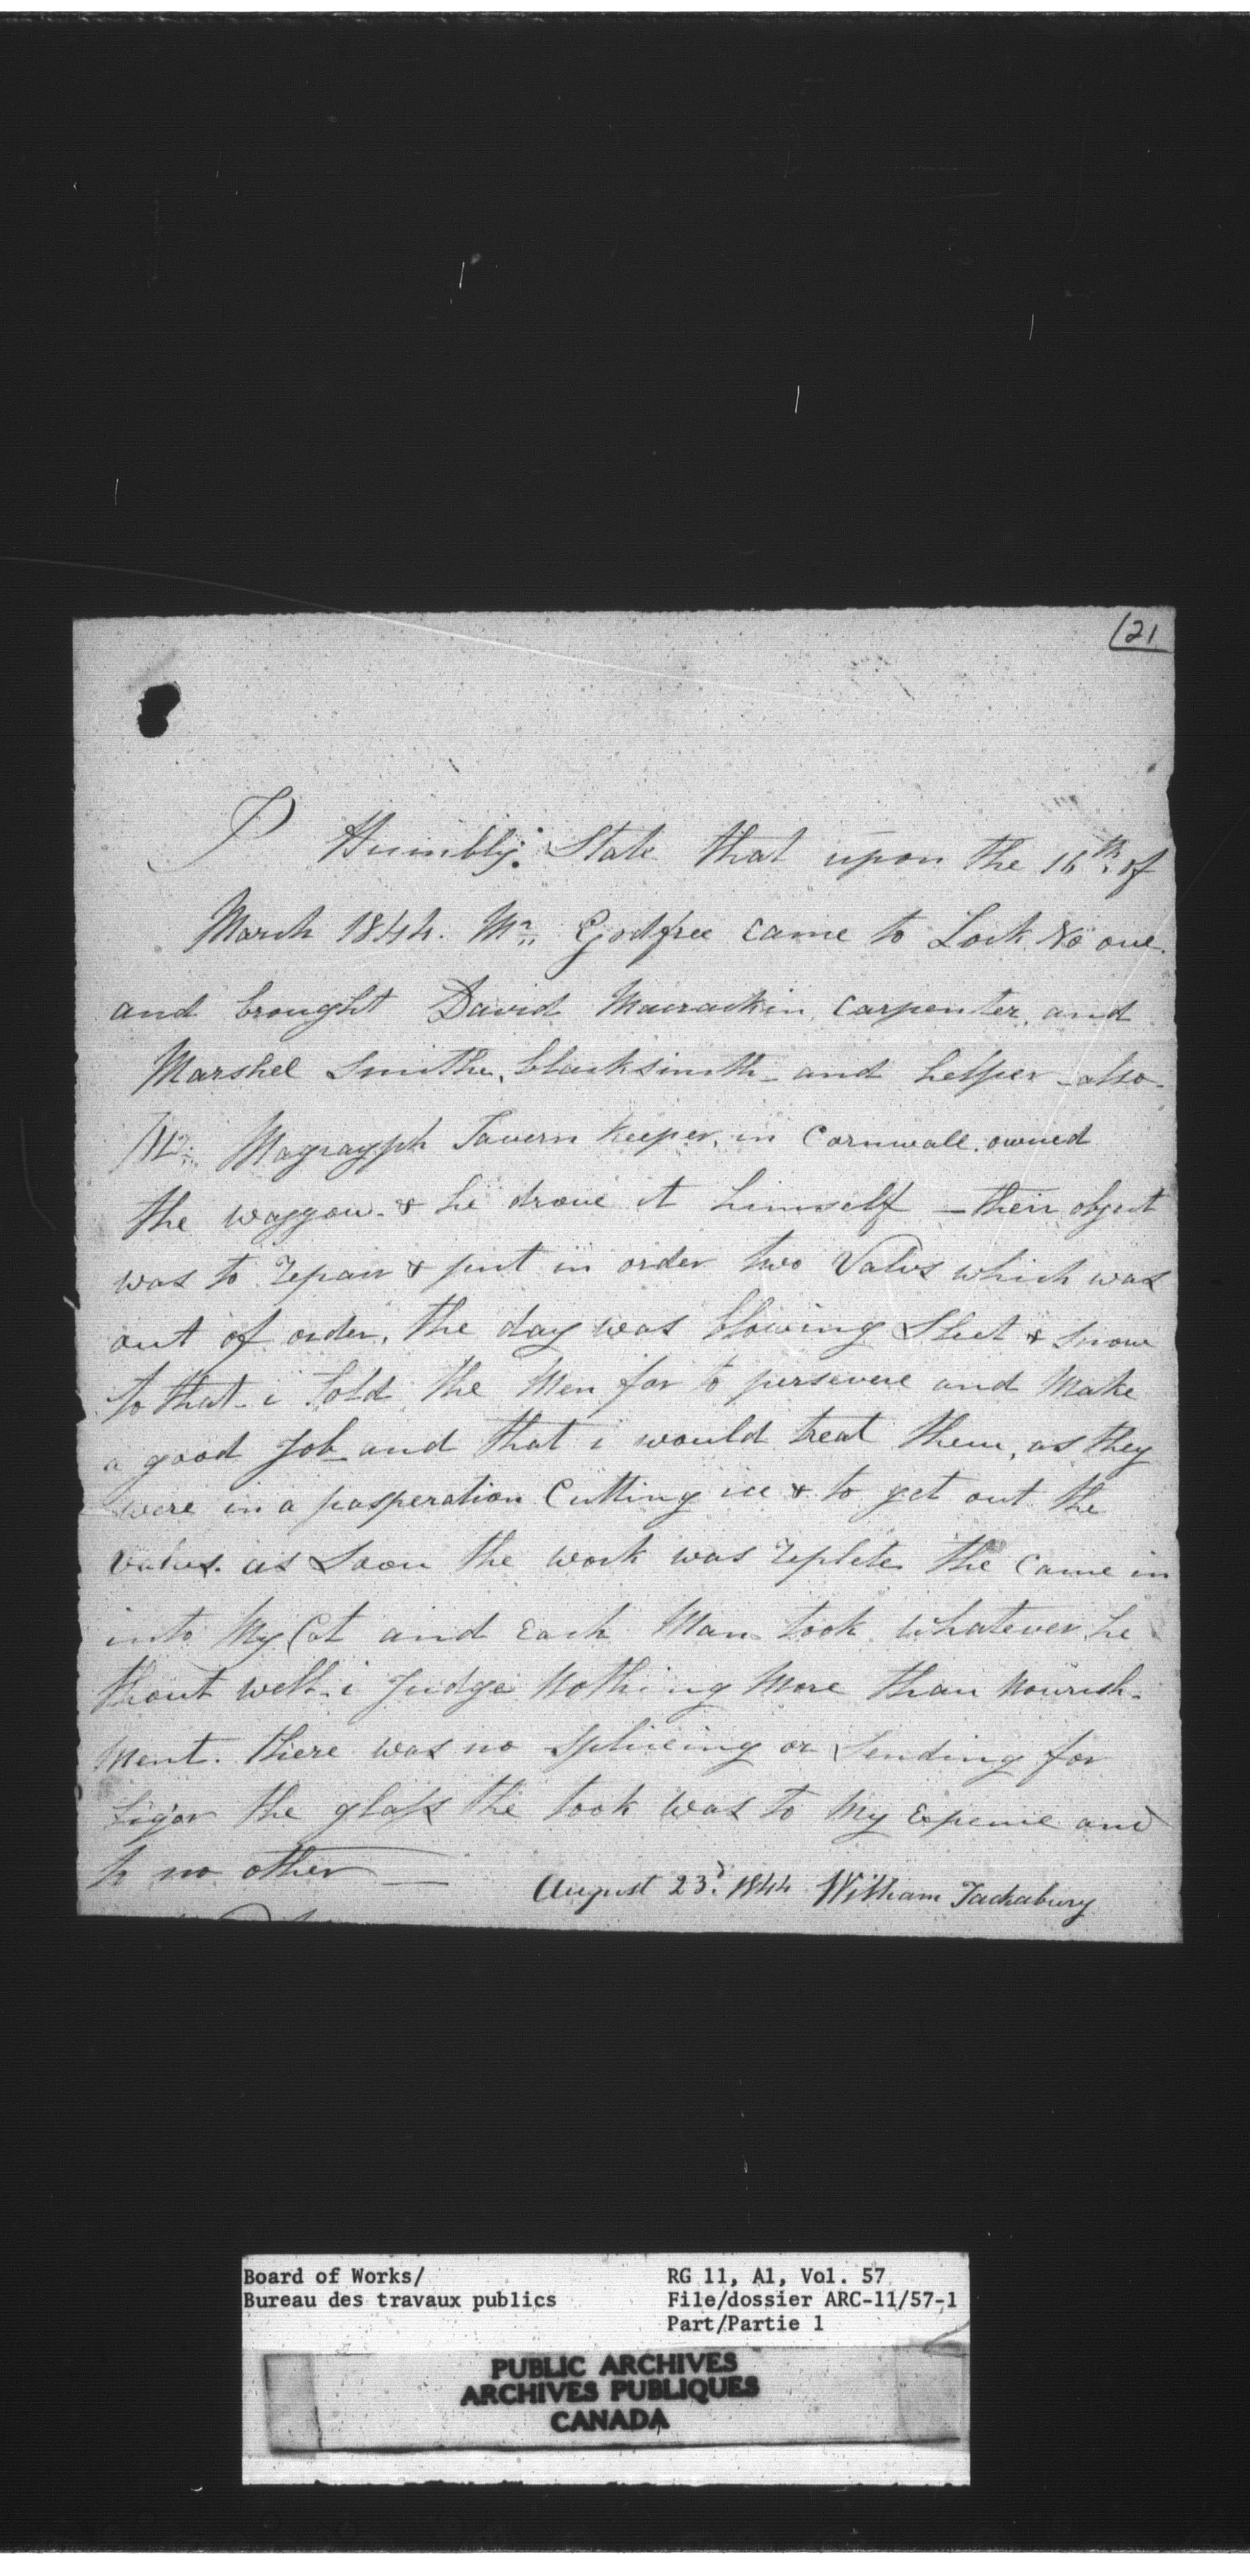 21
I Humbly: State that upon the 16th. of
March 1844. Mr. Godfree came to Lock No one.
and brought David Macrackin, carpenter, and
Marshel Smithe, blacksmith - and helper - also -
Mr. Magragph Tavern keeper, in Cornwall. owned
the waggon. & he drove it himself - their object
was to repair & put in order two Valvs which was
out of order. the day was blowing Sleet & Snow
so that - i told the Men for to persevere and Make
a good Job and that i would treat them, as they
were in a pasperation Cutting ice & to get out the
valves. as Soon the work was replete the came in
into My Cot and Each Man took whatever he
thout well. i Judge Nothing More than Nourish-
ment. there was no Spliceing or Sending for
Liqor the glass the took was to My Expence and
to no other
August 23d. 1844 William Tackabury
Board of Works/
Bureau des travaux publics
RG 11, A1, Vol. 57
File/dossier ARC-11/57-1
Part/Partie 1
PUBLIC ARCHIVES
ARCHIVES PUBLIQUES
CANADA